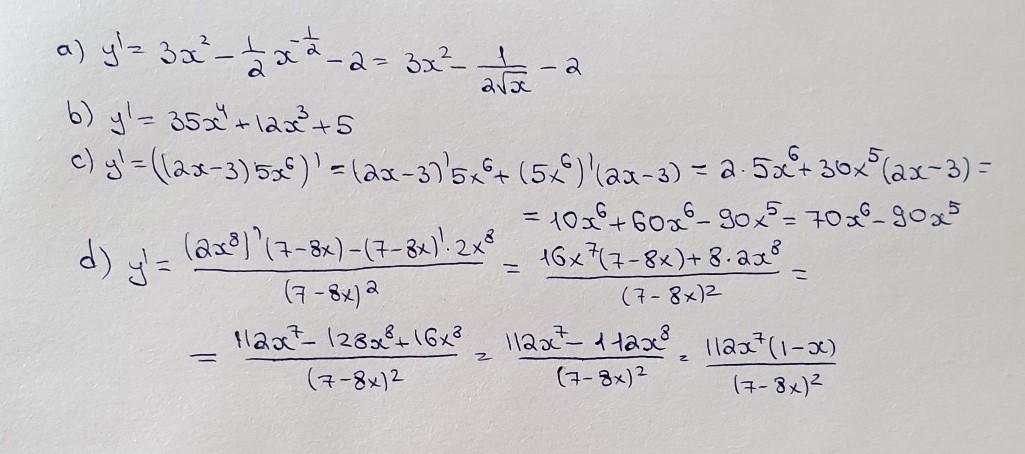 a) y' = 3x² - 1/2 x^(-1/2) - 2 = 3x² - 1/(2√x) - 2
b) y' = 35x⁴ + 12x³ + 5
c) y' = ((2x-3)5x⁶)' = (2x-3)'5x⁶ + (5x⁶)'(2x-3) = 2·5x⁶ + 30x⁵(2x-3) =
= 10x⁶ + 60x⁶ - 90x⁵ = 70x⁶ - 90x⁵
d) y' = ((2x⁸)'(7-8x) - (7-8x)'·2x⁸)/(7-8x)² = (16x⁷(7-8x) + 8·2x⁸)/(7-8x)² =
= (112x⁷ - 128x⁸ + 16x⁸)/(7-8x)² = (112x⁷ - 112x⁸)/(7-8x)² = (112x⁷(1-x))/(7-8x)²